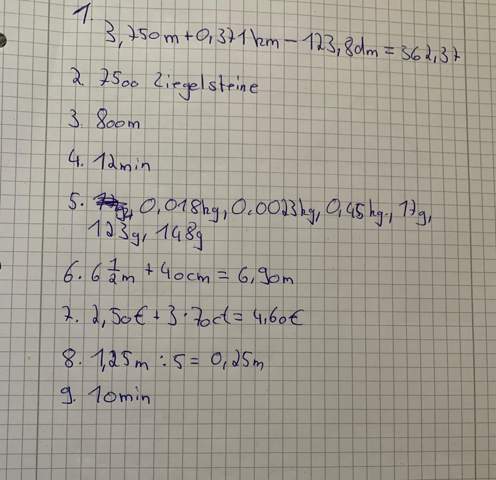 1.
3,750m+0,371km-123,8dm=362,37
2. 7500 Ziegelsteine
3. 800m
4. 12min
5. 0,018kg, 0,0023kg, 0,45kg, 17g,
123g, 148g
6. 6 1/2 m + 40cm = 6,90m
7. 2,50€ + 3·70ct = 4,60€
8. 1,25m : 5 = 0,25m
9. 10min